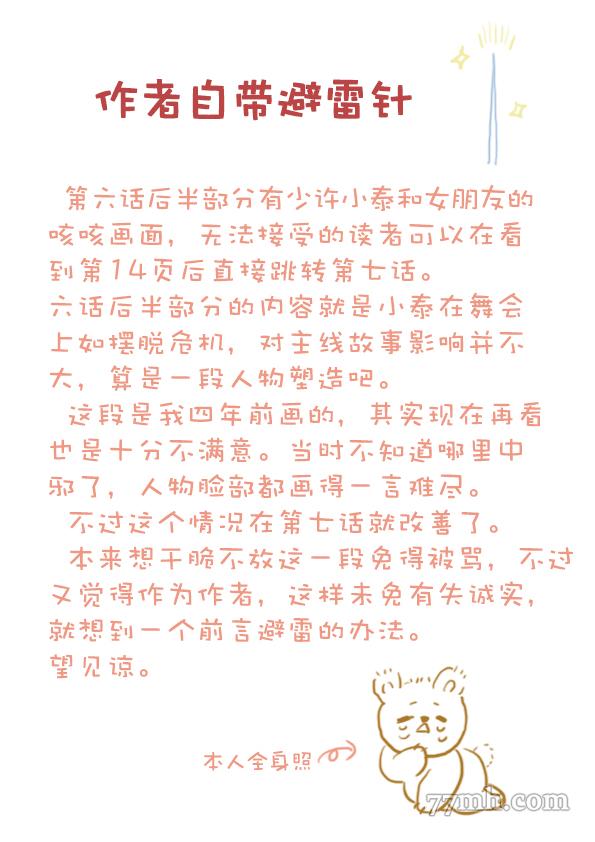 作者自带避雷针
第六话后半部分有少许小泰和女朋友的
咳咳画面，无法接受的读者可以在看
到第14页后直接跳转第七话。
六话后半部分的内容就是小泰在舞会
上如摆脱危机，对主线故事影响并不
大，算是一段人物塑造吧。
这段是我四年前画的，其实现在再看
也是十分不满意。当时不知道哪里中
邪了，人物脸部都画得一言难尽。
不过这个情况在第七话就改善了。
本来想干脆不放这一段免得被骂，不过
又觉得作为作者，这样未免有失诚实，
就想到一个前言避雷的办法。
望见谅。
本人全身照
77mh.com